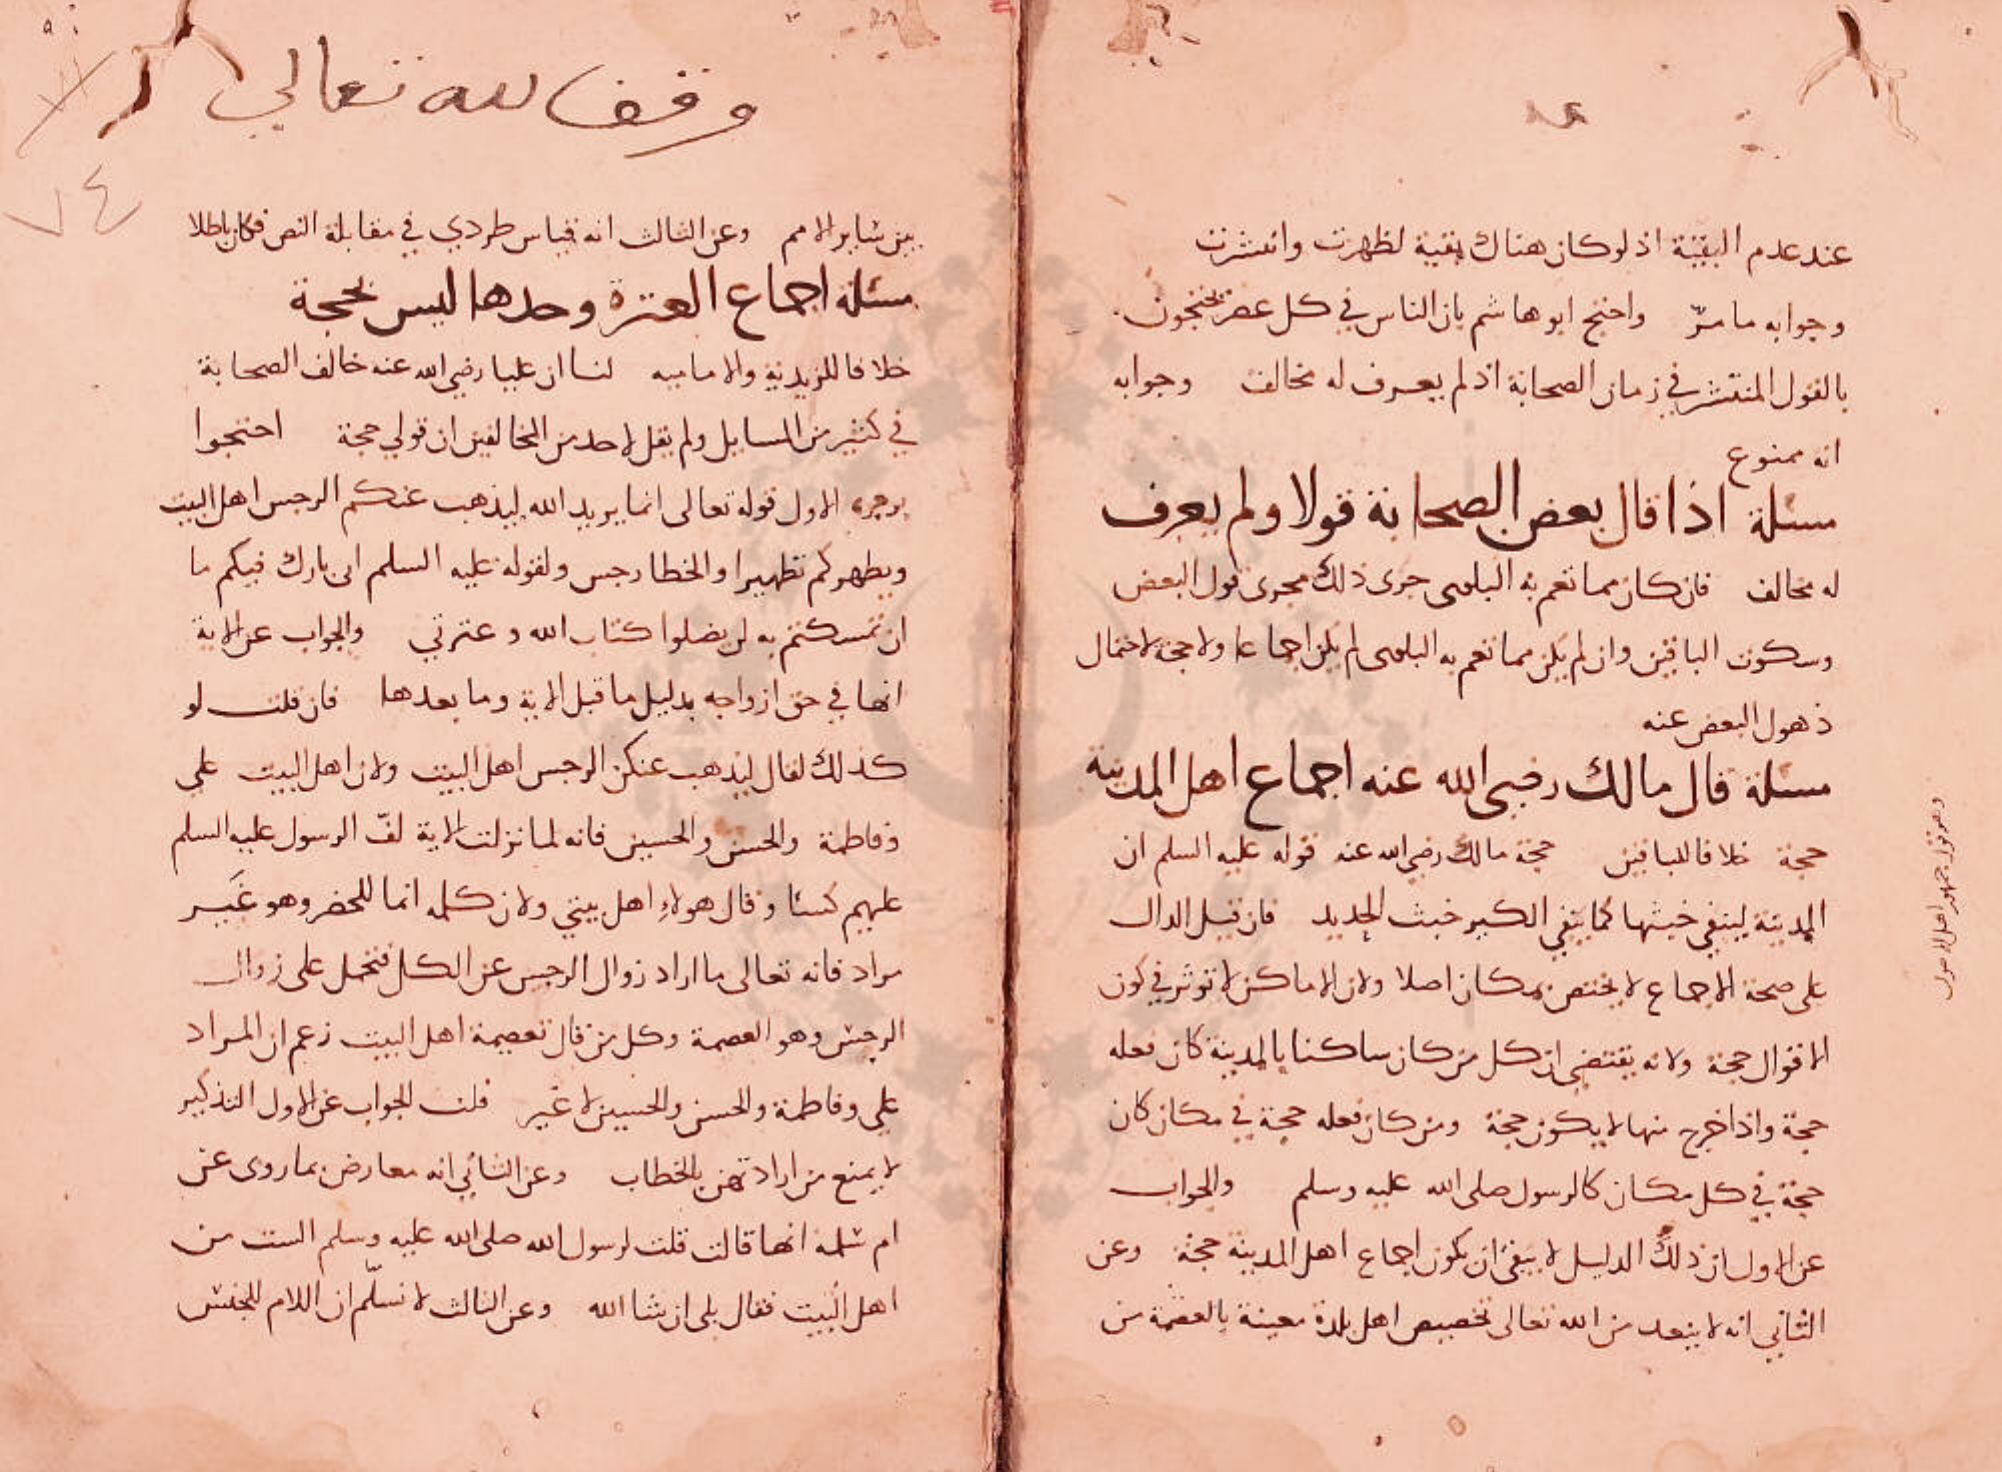 عند عدم التقية اذ لو كان هناك تقية لظهرت وانتشرت
وجوابه ما مرّ واحتج ابو هاشم بان الناس في كل عصر يحتجون
بالقول المنتشر في زمان الصحابة اذ لم يعرف له مخالف وجوابه
انه ممنوع
مسئلة اذا قال بعض الصحابة قولا ولم يعرف
له مخالف فان كان مما تعم به البلوى جرى ذلك مجرى قول البعض
وسكوت الباقين وان لم يكن مما تعم به البلوى لم يكن اجماعا ولا حجة لاحتمال
ذهول البعض عنه
مسئلة قال مالك رضي الله عنه اجماع اهل المدينة
حجة خلافا للباقين حجة مالك رضي الله عنه قوله عليه السلم ان
المدينة لينفي خبثها كما ينفي الكير خبث الحديد فان قيل الدال
على صحة الاجماع لا يختص بمكان اصلا ولان الاماكن لا توثر في كون
الاقوال حجة ولانه يقتضي ان كل من كان ساكنا بالمدينة كان فعله
حجة واذا خرج منها لا يكون حجة ومن كان فعله حجة في مكان كان
حجة في كل مكان كالرسول صلى الله عليه وسلم والجواب
عن الاول ان ذلك الدليل لا ينفي ان يكون اجماع اهل المدينة حجة وعن
الثاني انه لا يبعد من الله تعالى تخصيص اهل بلدة معينة بالعصمة من
وهو قول جمهور اهل الاصول
وقف لله تعالى
٧٤
بين ساير الامم وعن الثالث انه قياس طردي في مقابلة النص فكان باطلا
مسئلة اجماع العترة وحدها ليس بحجة
خلافا للزيدية والامامية لنا ان عليا رضي الله عنه خالف الصحابة
في كثير من المسايل ولم يقل لاحد من المخالفين ان قولي حجة احتجوا
بوجوه الاول قوله تعالى انما يريد الله ليذهب عنكم الرجس اهل البيت
ويطهركم تطهيرا والخطا رجس ولقوله عليه السلم اني تارك فيكم ما
ان تمسكتم به لن تضلوا كتاب الله وعترتي والجواب عن الاية
انها في حق ازواجه بدليل ما قبل الاية وما بعدها فان قلت لو
كذلك لقال ليذهب عنكن الرجس اهل البيت ولان اهل البيت علي
وفاطمة والحسن والحسين فانه لما نزلت الاية لفّ الرسول عليه السلم
عليهم كسئا وقال هولاءِ اهل بيتي ولان كلمه انما للحصر وهو غَير
مراد فانه تعالى ما اراد زوال الرجس عن الكل فتحمل على زوال
الرجس وهو العصمة وكل من قال بعصمة اهل البيت زعم ان المراد
علي وفاطمة والحسن والحسين لا غير قلت الجواب عن الاول التذكير
لا يمنع من ارادتهن بالخطاب وعن الثاني انه معارض بما روى عن
ام سلمة انها قالت قلت لرسول الله صلى الله عليه وسلم الست من
اهل البيت فقال بلى ان شا الله وعن الثالث لا نسلّم ان اللام للجنس